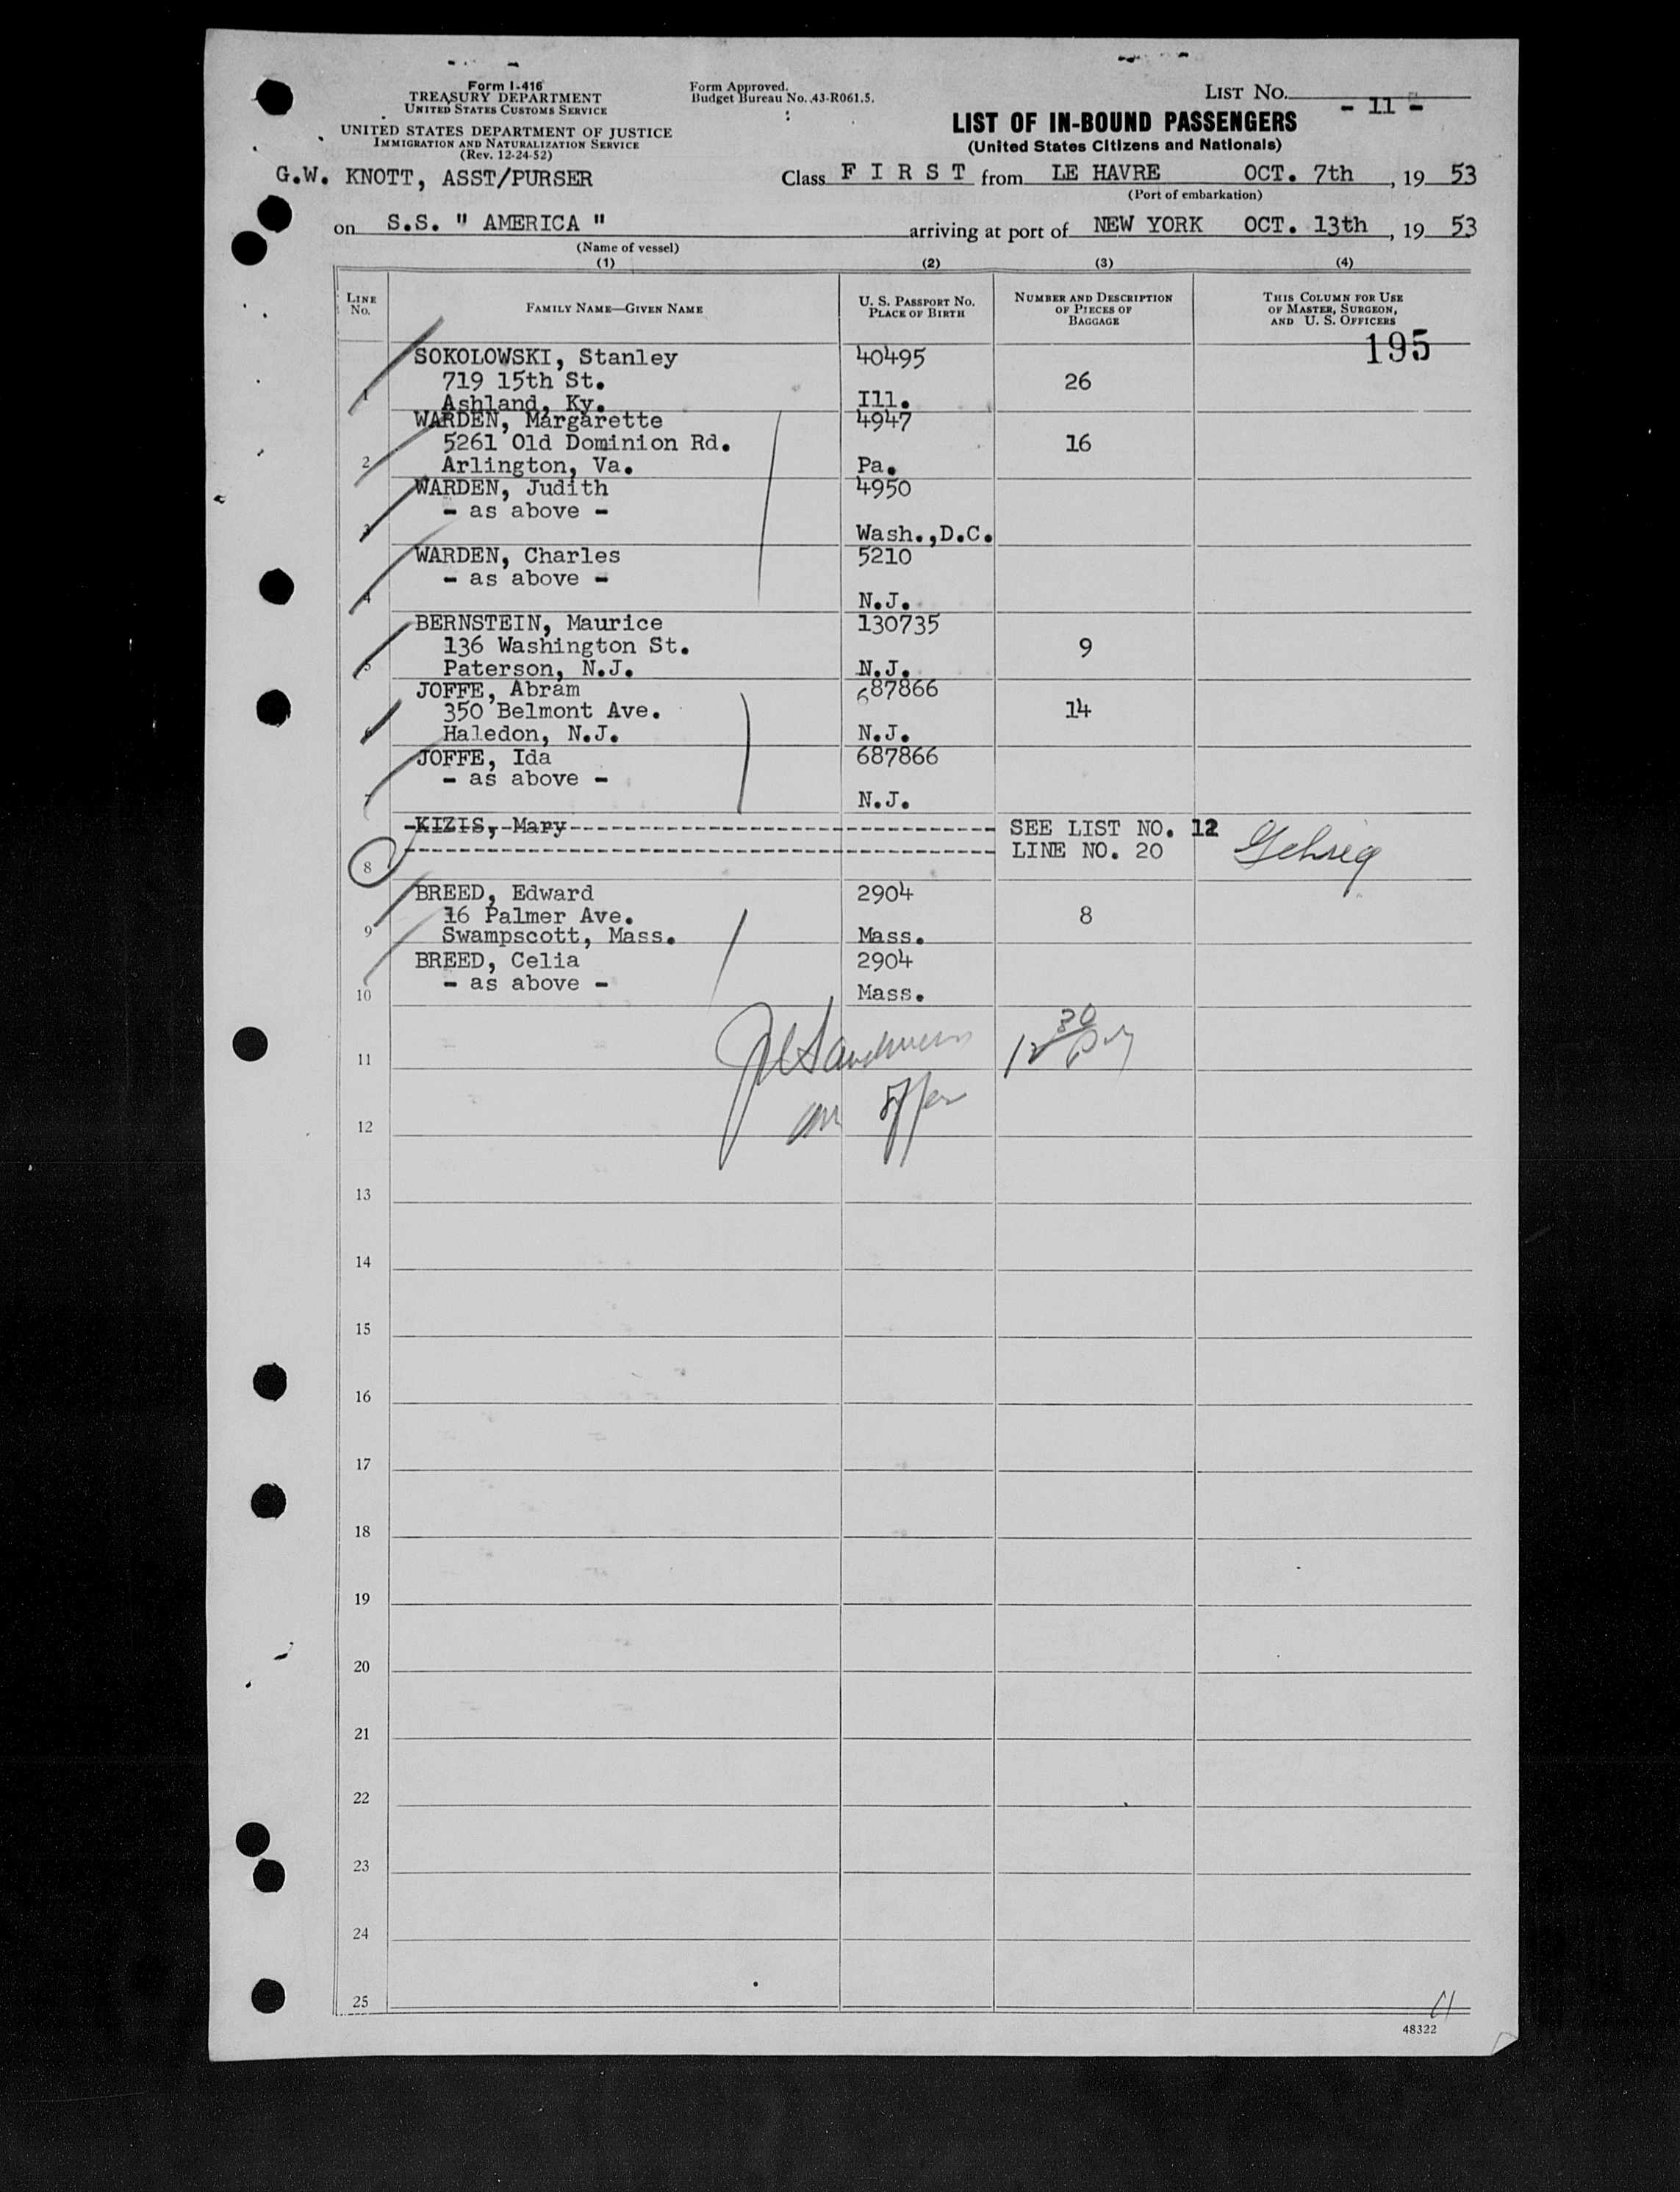 Form I-416
TREASURY DEPARTMENT
UNITED STATES CUSTOMS SERVICE
UNITED STATES DEPARTMENT OF JUSTICE
IMMIGRATION AND NATURALIZATION SERVICE
(Rev. 12-24-52)
Form Approved.
Budget Bureau No. 43-R061.5.
LIST NO. - 11 -
LIST OF IN-BOUND PASSENGERS
(United States Citizens and Nationals)
G.W. KNOTT, ASST/PURSER
Class F I R S T from LE HAVRE OCT. 7th, 19 53
(Port of embarkation)
on S.S. " AMERICA " arriving at port of NEW YORK OCT. 13th, 19 53
(Name of vessel)
(1) (2) (3) (4)
LINE NO. FAMILY NAME—GIVEN NAME U. S. PASSPORT NO. PLACE OF BIRTH NUMBER AND DESCRIPTION OF PIECES OF BAGGAGE THIS COLUMN FOR USE OF MASTER, SURGEON, AND U. S. OFFICERS
195
SOKOLOWSKI, Stanley 40495
719 15th St. 26
1 Ashland, Ky. Ill.
WARDEN, Margarette 4947
5261 Old Dominion Rd. 16
2 Arlington, Va. Pa.
WARDEN, Judith 4950
- as above -
3 Wash.,D.C.
WARDEN, Charles 5210
- as above -
4 N.J.
BERNSTEIN, Maurice 130735
136 Washington St. 9
5 Paterson, N.J. N.J.
JOFFE, Abram 687866
350 Belmont Ave. 14
6 Haledon, N.J. N.J.
JOFFE, Ida 687866
- as above -
7 N.J.
KIZIS, Mary SEE LIST NO. 12
LINE NO. 20 Gehrig
8
BREED, Edward 2904
16 Palmer Ave. 8
9 Swampscott, Mass. Mass.
BREED, Celia 2904
- as above -
10 Mass.
11
12
13
14
15
16
17
18
19
20
21
22
23
24
25
11
48322